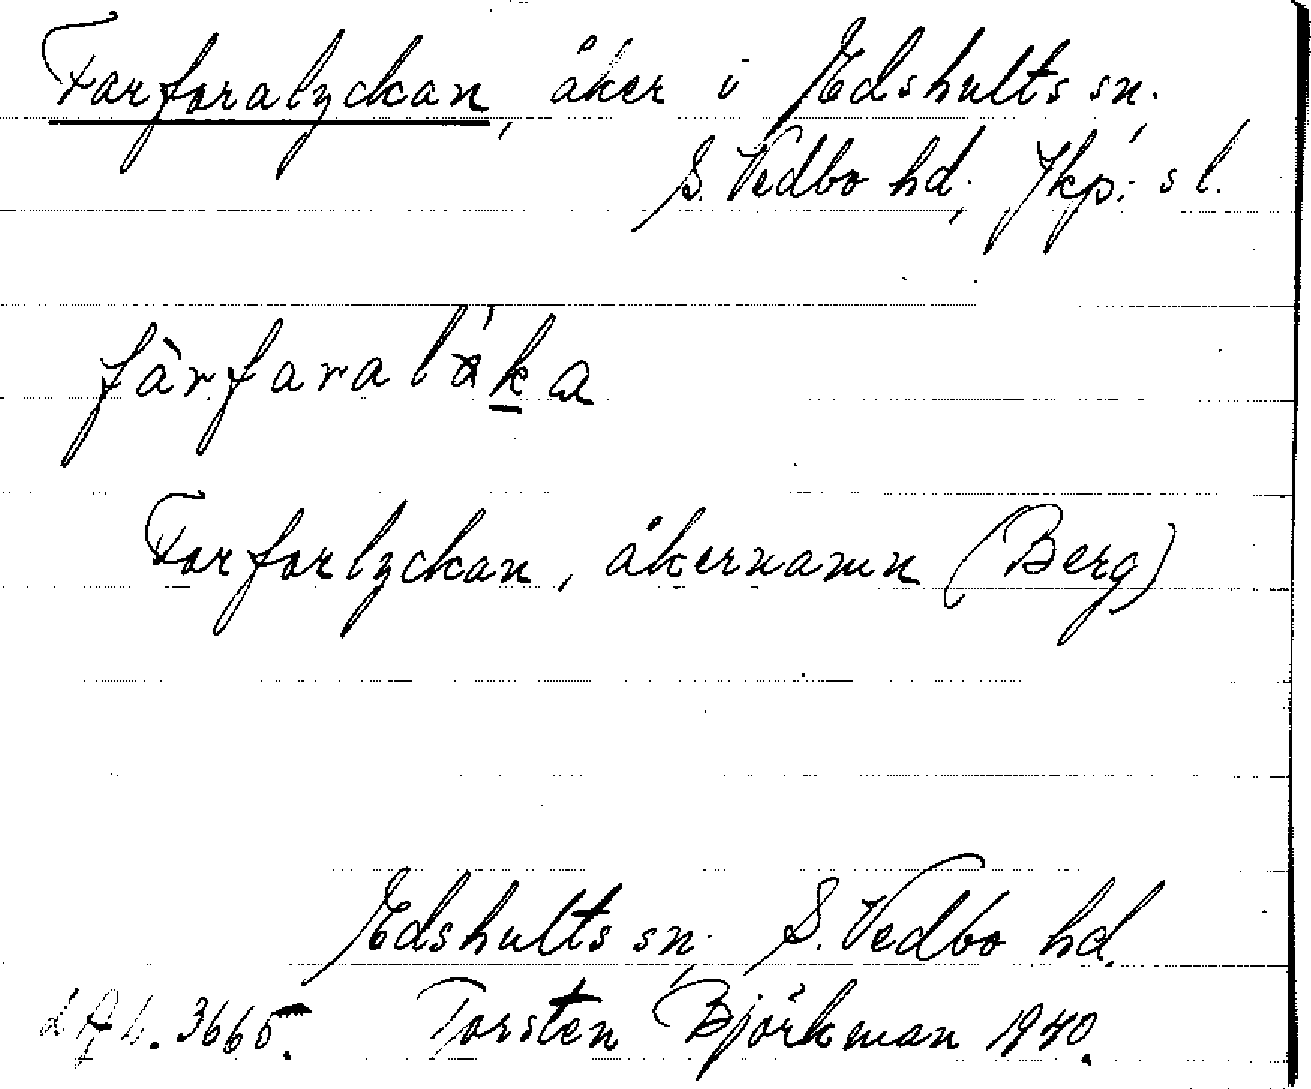 Farforalyckan, åker i Edshults sn.
S. Vedbo hd, Jkp:s l.
fàrfaraláka
Farforlyckan, åkernamn (Berg)
Edshults sn, S. Vedbo hd.
3665. Torsten Björkman 1940.